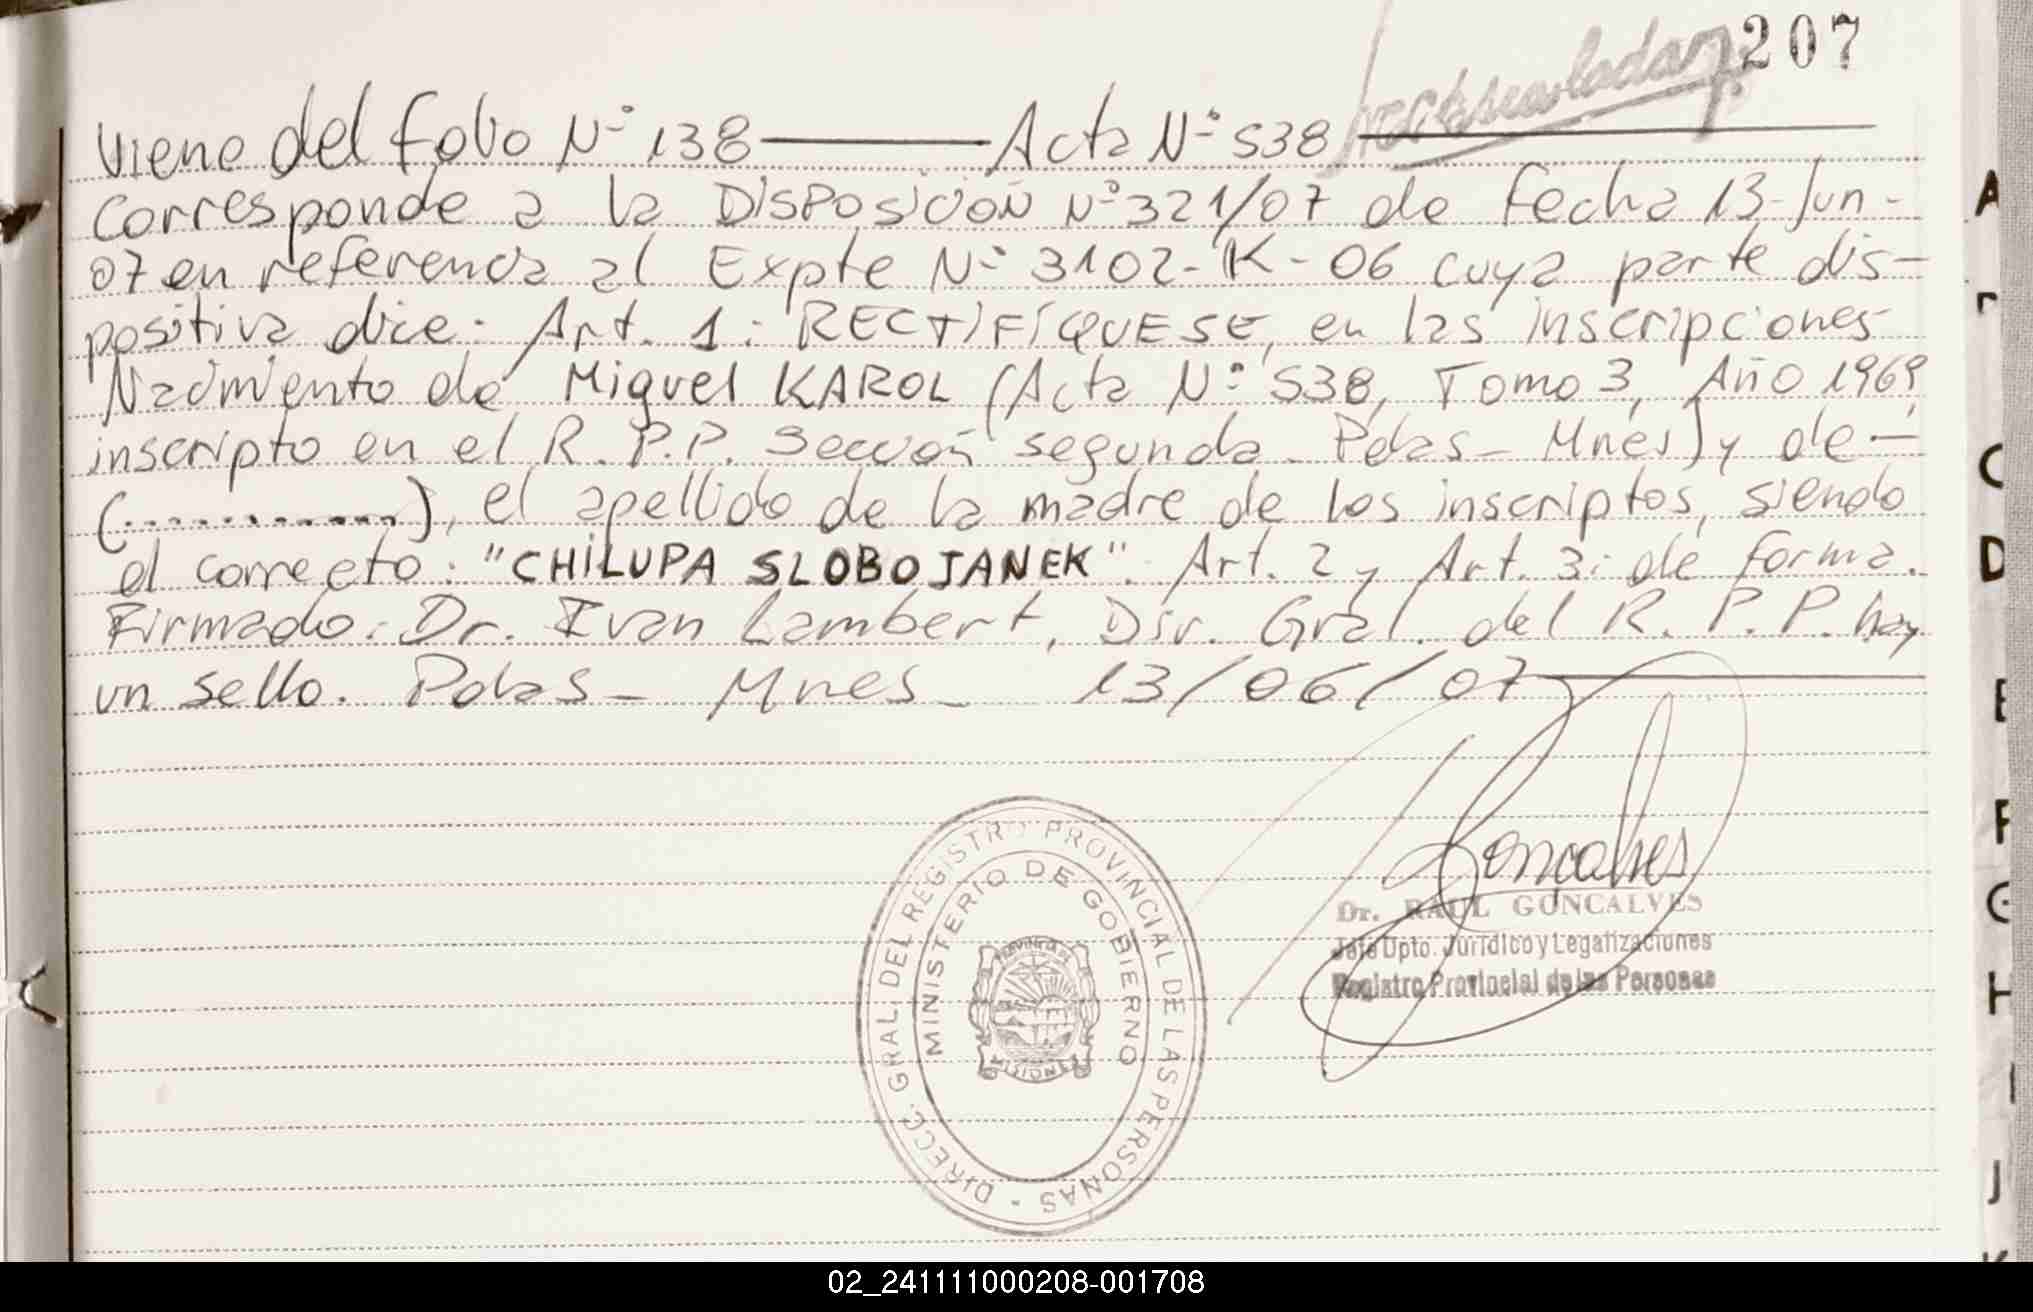 207
Viene del folio Nº 138 ——— Acta Nº 538
Corresponde a la DISPOSICIÓN Nº 321/07 de fecha 13-Jun-
07 en referencia al Expte Nº 3102-K-06 cuya parte dis-
positiva dice: Art. 1: RECTIFÍQUESE, en las inscripciones
Nacimiento de Miguel KAROL (Acta Nº 538, Tomo 3, Año 1969,
inscripto en el R.P.P. Sección segunda. Pdas- Mnes) y de —
(............), el apellido de la madre de los inscriptos, siendo
el correcto: "CHILUPA SLOBOJANEK". Art. 2 y Art. 3: de forma.
Firmado: Dr. Ivan Lambert, Dir. Gral. del R.P.P. hay
un sello. Pdas- Mnes- 13/06/07 ———
Goncalves
Dr. RAUL GONCALVES
Jefe Dpto. Jurídico y Legalizaciones
Registro Provincial de las Personas
DIRECC. GRAL. DEL REGISTRO PROVINCIAL DE LAS PERSONAS -
MINISTERIO DE GOBIERNO
PROVINCIA DE
MISIONES
A
C
D
E
F
G
H
I
J
K
02_241111000208-001708